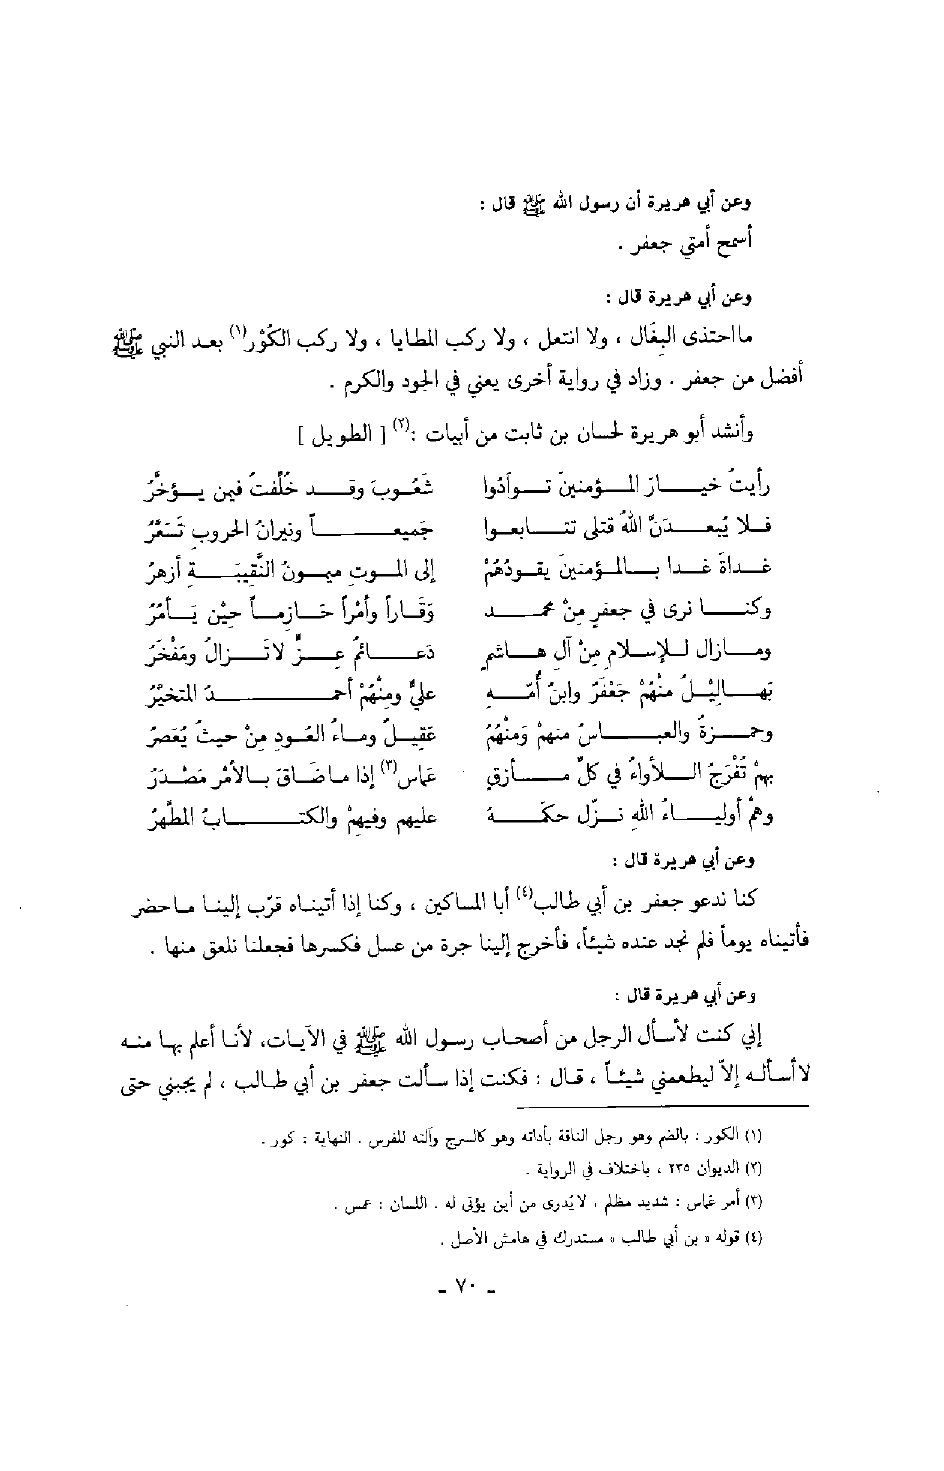 وعن أبي هريرة أن رسول الله ﷺ قال :
أسمح أمتي جعفر .
وعن أبي هريرة قال :
ما احتذى النِعَال ، ولا انتعل ، ولا ركب المطايا ، ولا ركب الكُوْر(١) بعد النبي ﷺ
أفضل من جعفر . وزاد في رواية أخرى يعني في الجود والكرم .
وأنشد أبو هريرة لحسان بن ثابت من أبيات :(٢) [ الطويل ]
رأيتُ خيارَ المؤمنينَ تواردُوا شَعُوبَ وقد خُلِّفتُ فيمن يؤخَّرُ
فلا يُبعدَنَّ اللهُ قتلى تتابعوا جميعاً ونيرانُ الحروبِ تَسَعَّرُ
غداةَ غدا بالمؤمنينَ يقودُهُمْ إلى الموتِ ميمونُ النَّقيبَةِ أزهرُ
وكنا نرى في جعفرٍ مِنْ محمدٍ وَقَاراً وأمْراً حَازِماً حيْنَ يَأمُرُ
ومازال للإسلامِ مِنْ آلِ هاشمٍ دَعائمُ عِزٍّ لاتَزالُ ومَفْخَرُ
بَهاليْلُ منْهُمْ جَعْفَرٌ وابنُ أُمّهِ عليٌّ ومِنْهُمْ أحمدُ المتخيَّرُ
وحمزةُ والعباسُ منهمْ وَمنْهُمُ عَقيلٌ وماءُ العُودِ مِنْ حيثُ يُعْصَرُ
بِهِمْ تُفْرَجُ اللأواءُ في كلِّ مأزقٍ عَماسٍ(٣) إذا ماضَاقَ بالأمْرِ مَصْدَرُ
وهمْ أولياءُ اللهِ نزّلَ حكمَهُ عليهم وفيهمْ والكتابُ المطَهَّرُ
وعن أبي هريرة قال :
كنا ندعو جعفر بن أبي طالب(٤) أبا المساكين ، وكنا إذا أتيناه قرّب إلينا ماحضر
فأتيناه يوماً فلم نجد عنده شيئاً، فأخرج إلينا جرة من عسل فكسرها فجعلنا نلعق منها .
وعن أبي هريرة قال :
إني كنت لأسأل الرجل من أصحاب رسول الله ﷺ في الآيات، لأنا أعلم بها منه
لا أسأله إلاّ ليطعمني شيئاً ، قال : فكنت إذا سألت جعفر بن أبي طالب ، لم يجبني حتى
(١) الكور : بالضم وهو رحل الناقة بأداته وهو كالسرج وآلته للفرس . النهاية : كور .
(٢) الديوان ٢٣٥ ، باختلاف في الرواية .
(٣) أمر عماس : شديد مظلم ، لا يُدرى من أين يؤتى له . اللسان : عمس .
(٤) قوله « بن أبي طالب » مستدرك في هامش الأصل .
- ٧٠ -